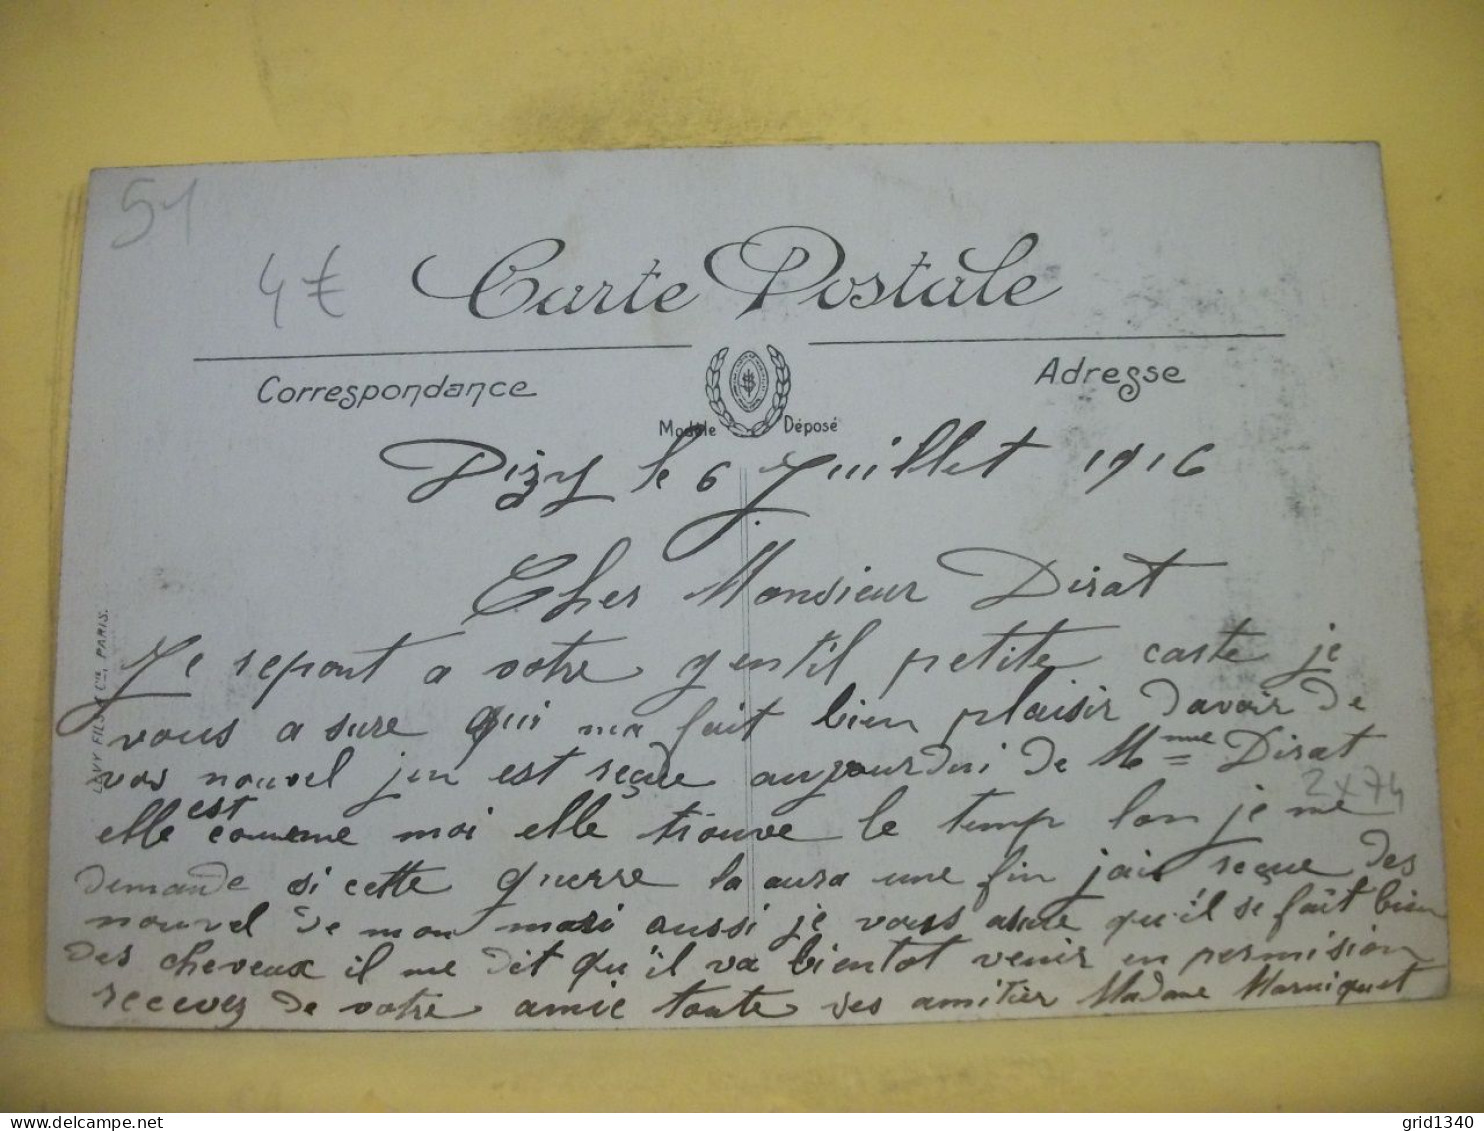 51
4€
Carte Postale
Correspondance
Adresse
Modèle Déposé
Dizy le 6 Juillet 1916
Cher Monsieur Disat
Je repont a votre gentil petite carte je
vous a sure qui ma fait bien plaisir davoir de
vos nouvel jen est reçue aujourdui de Mme Disat
elle est comme moi elle trouve le temp lon je me
demande si cette guerre la aura une fin jais reçue des
nouvel de mon mari aussi je vous asure qu'il se fait bien
des cheveux il me dit qu'il va bientot venir en permision
recevez de votre amie toute ses amitier Madame Marniquet
2x74
LEVY FILS & Cie, PARIS.
grid1340